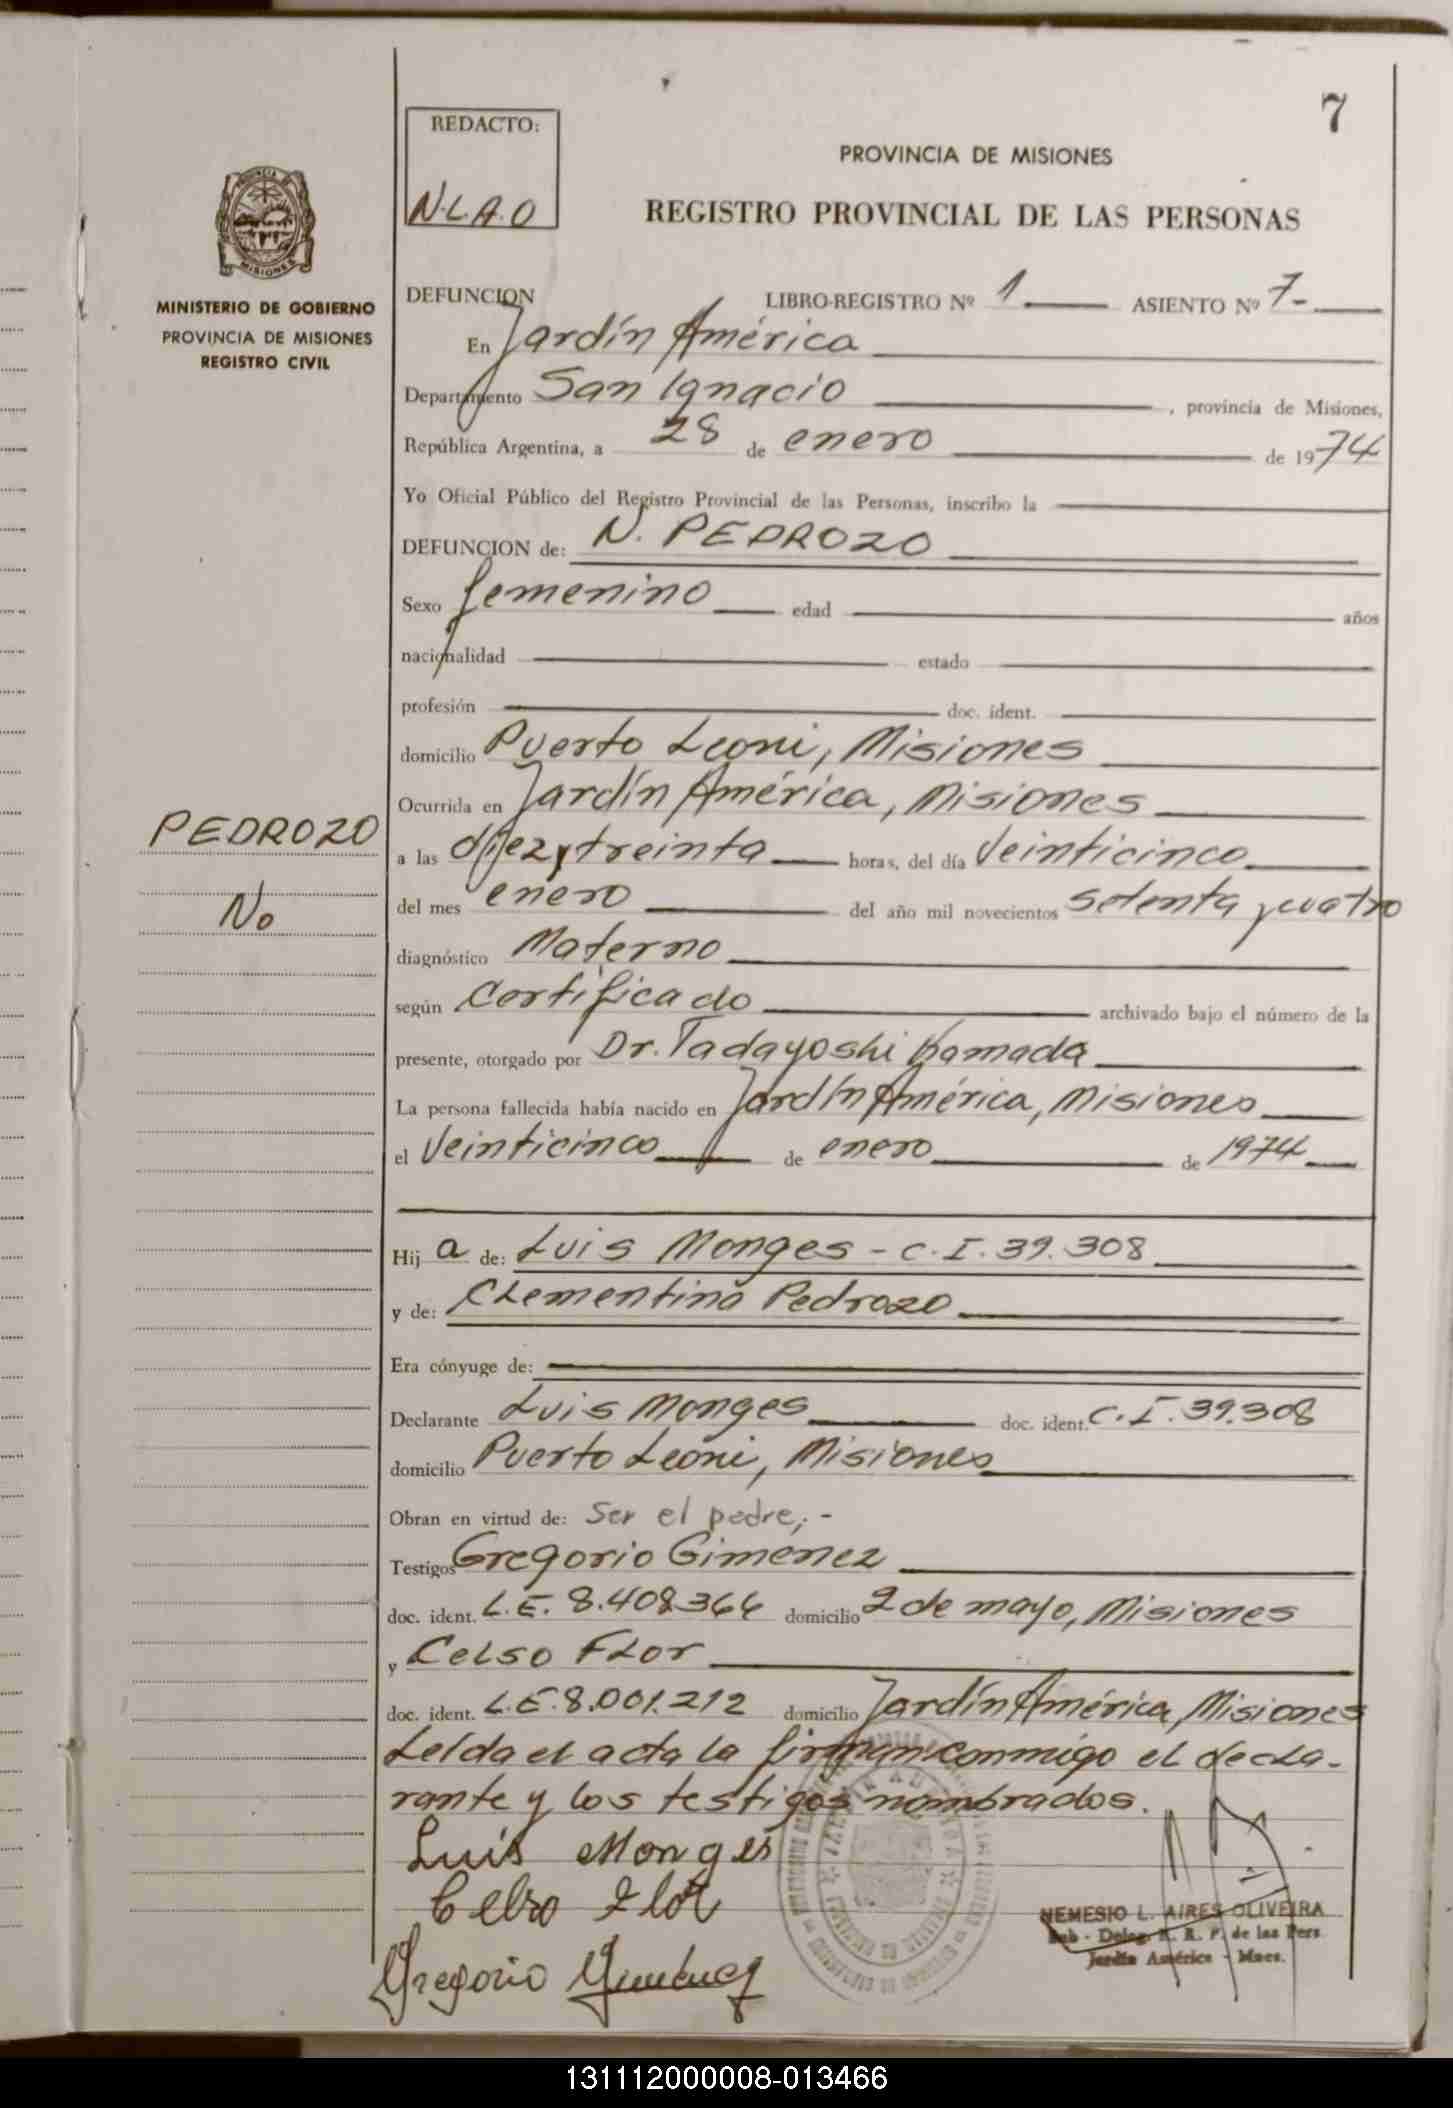 7
REDACTO:
N.L.A.O
PROVINCIA DE MISIONES
REGISTRO PROVINCIAL DE LAS PERSONAS
PROVINCIA DE
MISIONES
MINISTERIO DE GOBIERNO
PROVINCIA DE MISIONES
REGISTRO CIVIL
DEFUNCION LIBRO-REGISTRO Nº 1 ASIENTO Nº 7-
En Jardín América
Departamento San Ignacio , provincia de Misiones,
República Argentina, a 28 de enero de 1974
Yo Oficial Público del Registro Provincial de las Personas, inscribo la
DEFUNCION de: N. PEDROZO
Sexo femenino edad años
nacionalidad estado
profesión doc. ident.
domicilio Puerto Leoni, Misiones
Ocurrida en Jardín América, Misiones
PEDROZO
No
a las diez y treinta horas, del día Veinticinco
del mes enero del año mil novecientos setenta y cuatro
diagnóstico Materno
según Certificado archivado bajo el número de la
presente, otorgado por Dr. Tadayoshi Kamada
La persona fallecida había nacido en Jardín América, Misiones
el Veinticinco de enero de 1974
Hij a de: Luis Monges - C.I. 39.308
y de: Clementina Pedrozo
Era cónyuge de:
Declarante Luis Monges doc. ident. C.I. 39.308
domicilio Puerto Leoni, Misiones
Obran en virtud de: Ser el padre,.-
Testigos Gregorio Gimenez
doc. ident. L.E. 8.408.366 domicilio 2 de mayo, Misiones
y Celso Flor
doc. ident. L.E. 8.001.212 domicilio Jardín América, Misiones
Leída el acta la firman conmigo el decla-
rante y los testigos nombrados.
Luis Monges
Celso Flor
Gregorio Gimenez
NEMESIO L. AIRES OLIVEIRA
Sub - Deleg. R. P. de las Pers.
Jardín América - Mnes.
131112000008-013466